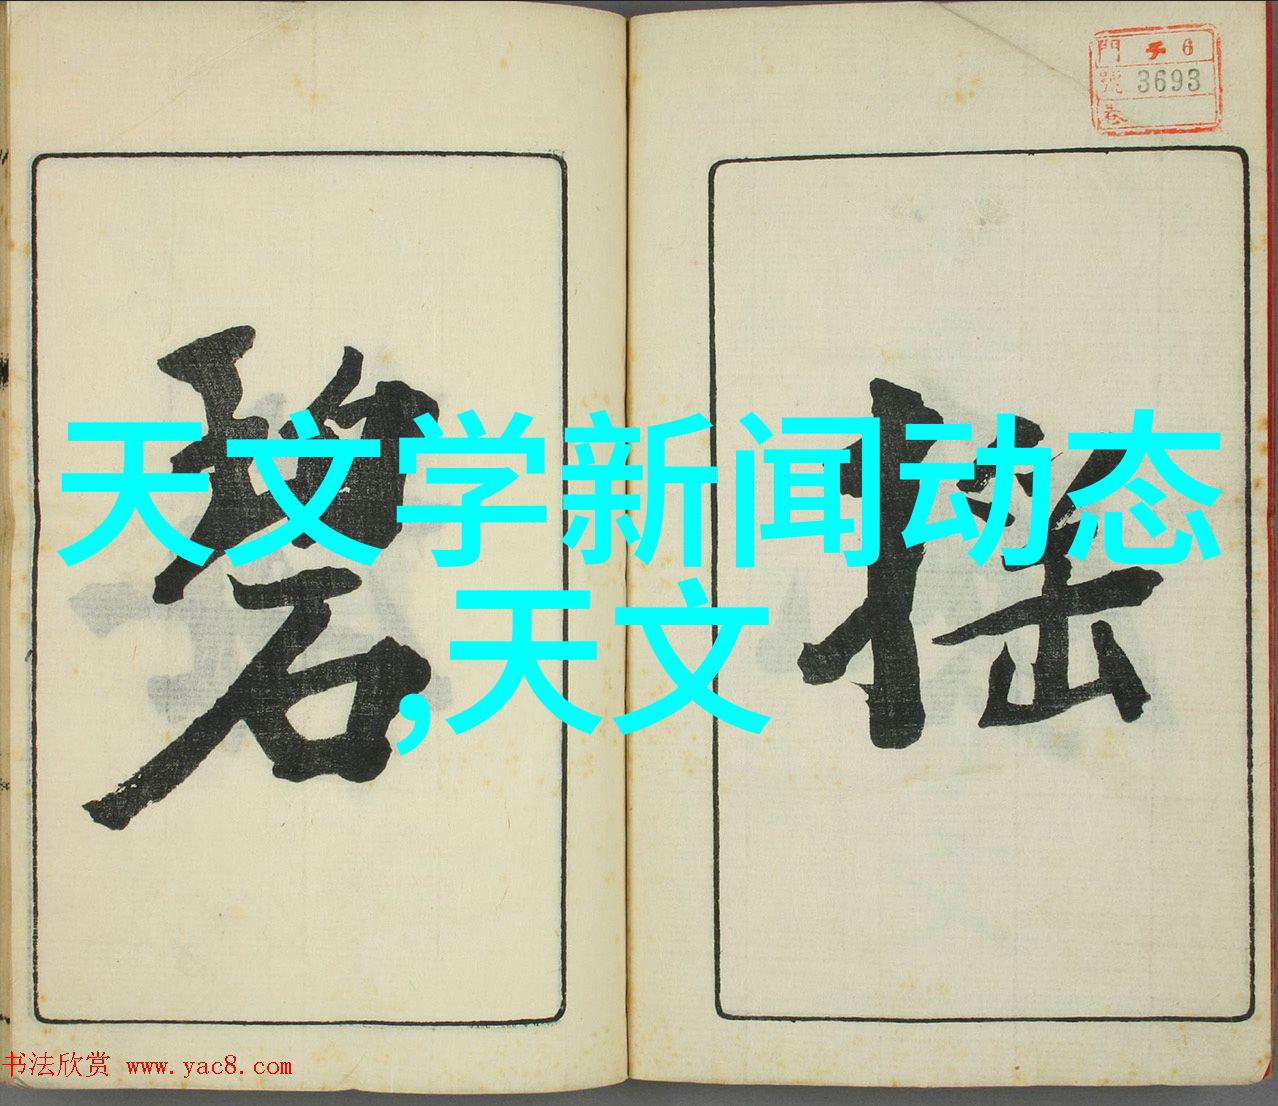 門 チ 6
號 3693
卷
搖
碧
天文学新闻动态
,天文
书法欣赏 www.yac8.com